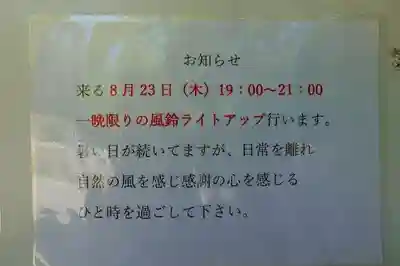 お知らせ
来る8月23日（木）19：00～21：00
一晩限りの風鈴ライトアップ行います。
暑い日が続いてますが、日常を離れ
自然の風を感じ感謝の心を感じる
ひと時を過ごして下さい。